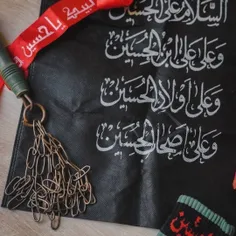 السلام على الحسين
وعلى علي ابن الحسين
وعلى أولاد الحسين
وعلى أصحاب الحسين
يا حسين